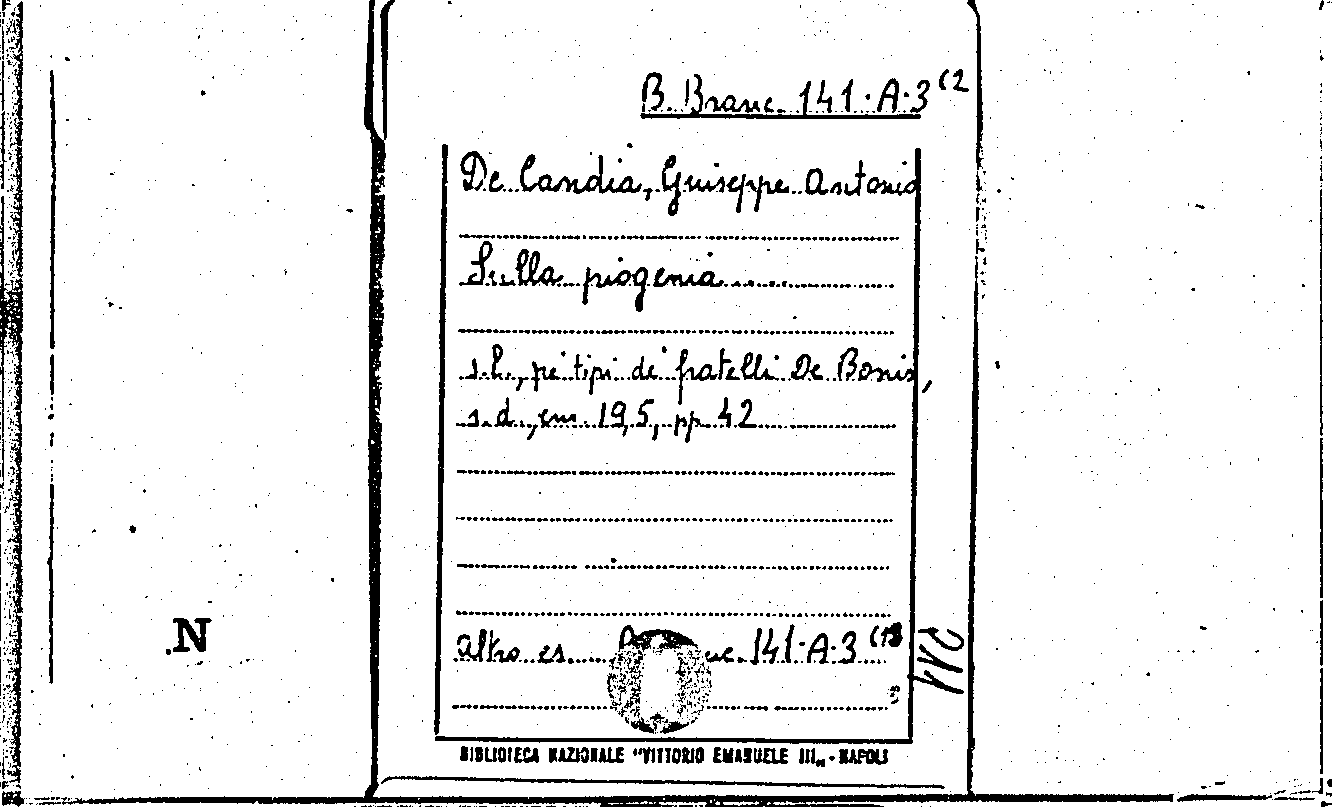 B. Branc. 141.A.3 (2
De Candia, Giuseppe Antonio
Sulla piogenia......
s.l., pe' tipi de' fratelli De Bonis,
s.d., cm. 19,5, pp. 42
N
altro es. 141.A.3
BIBLIOTECA NAZIONALE "VITTORIO EMANUELE III„ - NAPOLI